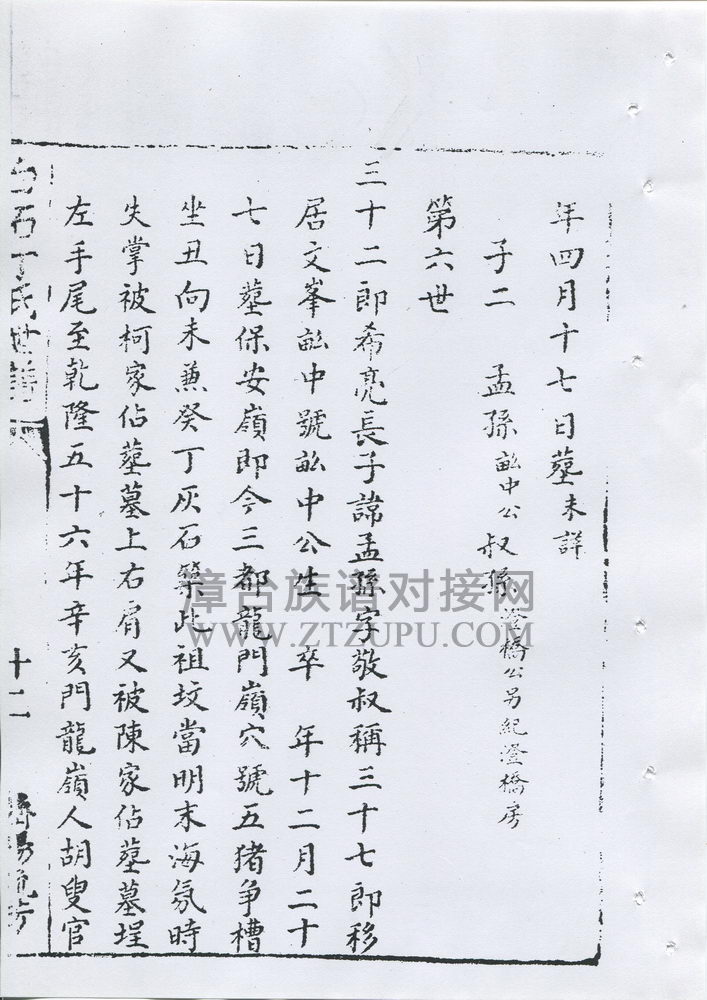 年四月十七日塟未詳
子二 孟孫畆中公 叔孫澄橋公另紀澄橋房
第六世
三十二郎希亮長子諱孟孫字敬叔稱三十七郎移
居文峯畆中號畆中公生 卒 年十二月二十
七日塟保安嶺即今三都龍門嶺穴號五猪争槽
坐丑向未兼癸丁灰石築此祖坟當明末海氛時
失掌被柯家佔塟墓上右肩又被陳家佔塟墓埕
左手尾至乾隆五十六年辛亥門龍嶺人胡叟官
白石丁氏世譜
十二
濟陽
漳台族谱对接网
WWW.ZTZUPU.COM